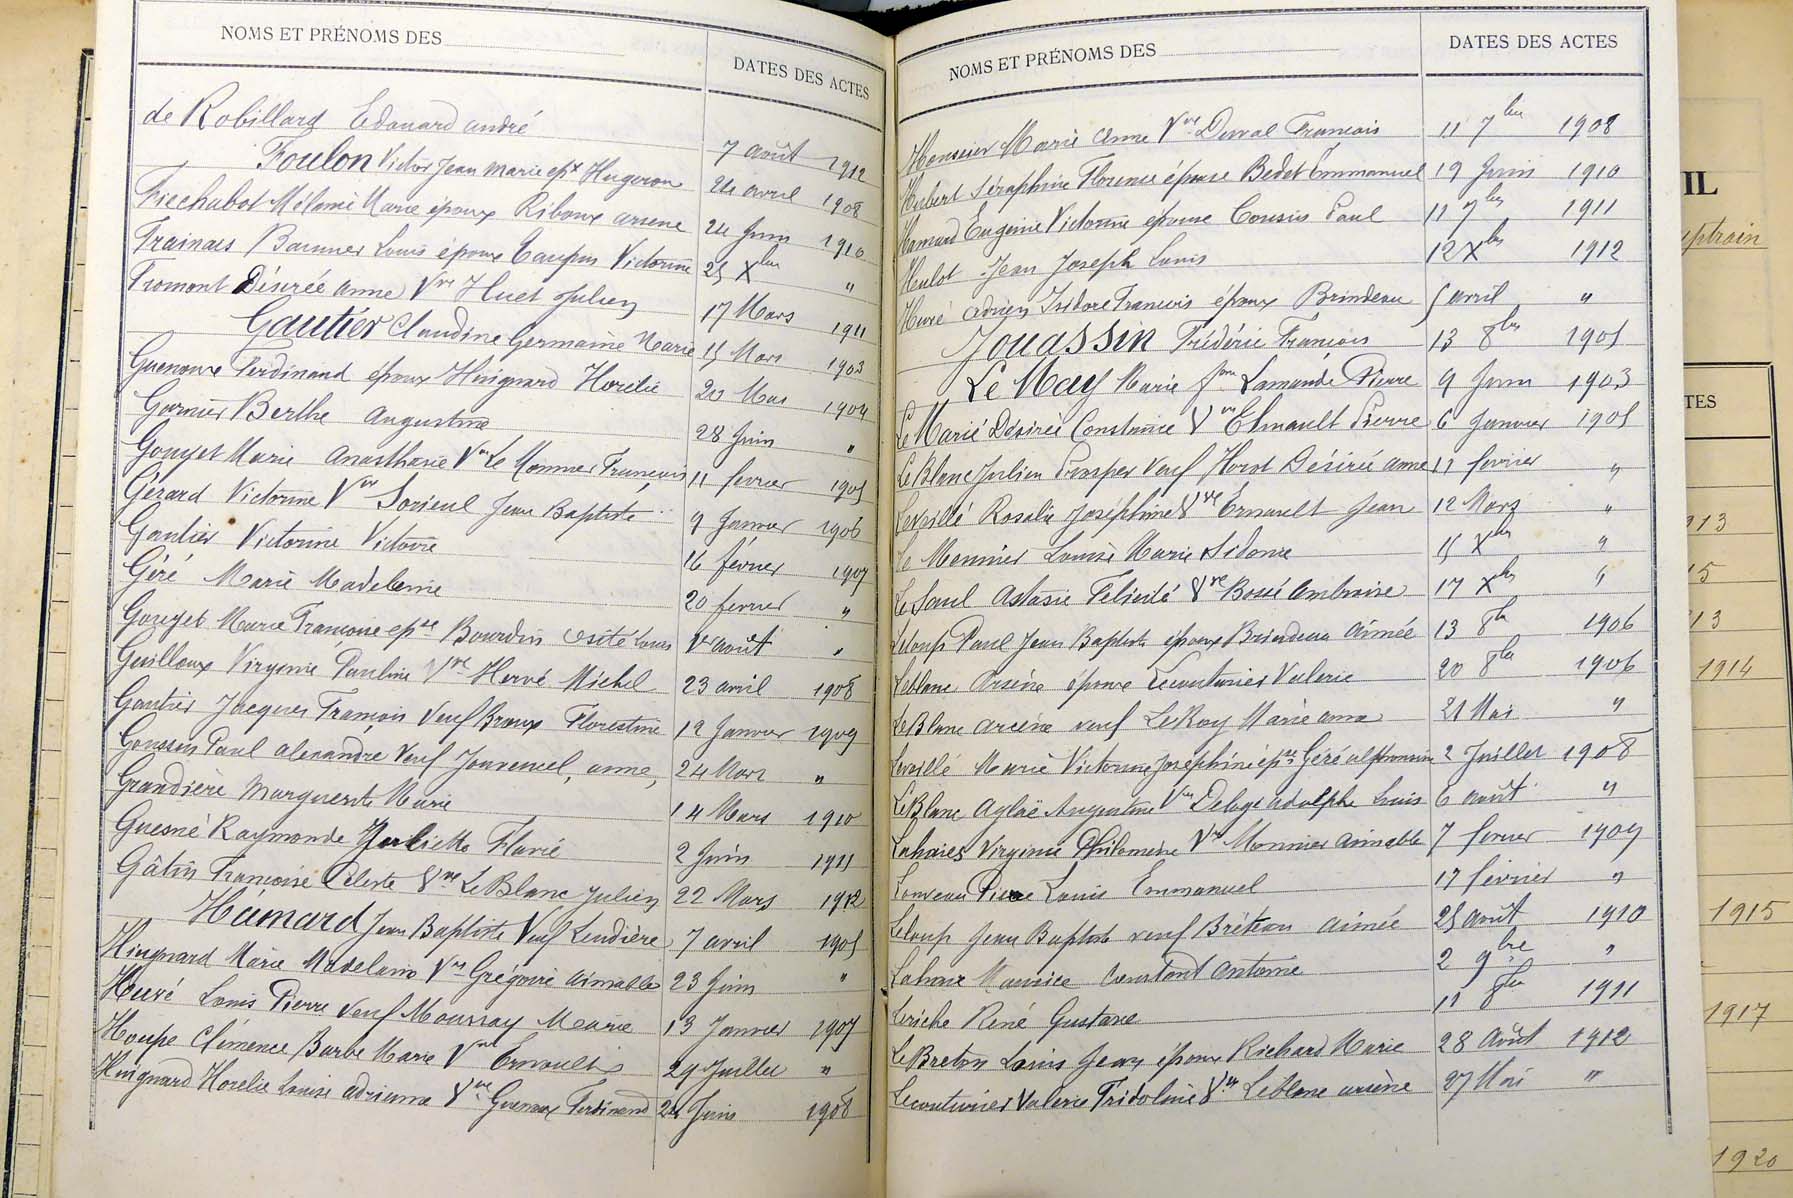 NOMS ET PRÉNOMS DES
DATES DES ACTES
de Robillard Edouard andré 7 août 1912
Foulon Victor Jean Marie épx Hugeron 24 avril 1908
Frechabot Mélanie Marie époux Riboux arsene 24 Juin 1910
Frainais Bannier Louis époux Taupin Victorine 25 Xbre "
Fromont Désirée anne Vve Huet Julien 17 Mars 1911
Gautier Claudine Germaine Marie 15 Mars 1903
Guenoux Ferdinand époux Huignard Horélie 20 Mai 1904
Garnier Berthe Augustine 28 Juin "
Gouget Marie Anasthasie Vve Le Monnier François 11 fevrier 1905
Gérard Victorine Vve Jean Baptiste 9 Janvier 1906
Gautier Victorine Victoire 16 février 1907
Géré Marie Madeleine 20 fevrier "
Gouget Marie Françoise epse Bourdin Louis 1er août "
Guilloux Virginie Pauline Vve Hervé Michel 23 avril 1908
Gautier Jacques François Veuf Broux Florestine 12 Janvier 1909
Gousson Paul alexandre Veuf Jouvencel, anne, 24 Mars "
Grandière Marguerite Marie 14 Mars 1910
Guesné Raymonde Juliette Flavie 2 Juin 1911
Gâtin Françoise Céleste Vve Le Blanc Julien 22 Mars 1912
Hamard Jean Baptiste Veuf Lendière 7 avril 1905
Huignard Marie Madelaine Vve Grégoire aimable 23 Juin "
Heuvé Louis Pierre Veuf Moussay Marie 13 Janvier 1907
Houpe Clémence Barbe Marie Vve Ernault 29 Juillet "
Huignard Horélie Louise adrienne Vve Guenoux Ferdinand 24 Juin 1908
NOMS ET PRÉNOMS DES
DATES DES ACTES
Marie Anne Vve Duval François 11 7bre 1908
Hubert Séraphine Florence épouse Bedet Emmanuel 19 Juin 1910
Hamard Eugénie Victorine épouse Cousin Paul 11 7bre 1911
Heulot Jean Joseph Louis 12 Xbre 1912
Heuvé Adrien Isidore François époux Brindeau 5 avril "
Jouassin Frédéric François 13 8bre 1905
Le May Marie fme Lamandé Pierre 9 Juin 1903
Le Marié Désirée Constance Vve Ernault Pierre 6 Janvier 1905
Le Blanc Julien Prosper Veuf Horot Désirée anne 11 fevrier "
Leveillé Rosalie Joséphine Vve Ernault Jean 12 Mars "
Le Monnier Louise Marie Sidonie 15 Xbre "
Le Saul Astasie Félicité Vve Bossé Ambroise 17 Xbre "
Leloup Paul Jean Baptiste époux Brindeau Aimée 13 8bre 1906
Leblanc Arsène époux Lecouturier Valerie 20 8bre 1906
Le Blanc arsène veuf Le Roy Marie anne 21 Mai "
Leveillé Marie Victorine Joséphine épse Géré alphonsine 2 Juillet 1908
Le Blanc Aglaé Augustine Vve Delage adolphe Louis 6 août "
Lahaies Virginie Philomène Vve Monnier aimable 7 fevrier 1909
Louveau Pierre Louis Emmanuel 17 février "
Leloup Jean Baptiste veuf Brétion aimée 25 août 1910
Lahaie Maurice Constant Antoine 2 9bre "
Leriche René Gustave 11 8bre 1911
Le Breton Louis Jean époux Richard Marie 28 Août 1912
Lecouturier Valerie Fridoline Vve Leblanc arsène 27 Mai "
IL
TES
1914
1915
1917
1920